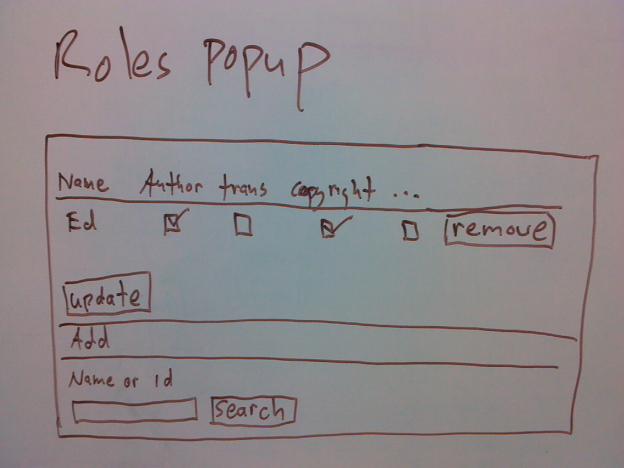 Roles Popup
Name Author trans copyright ...
Ed remove
update
Add
Name or Id
Search